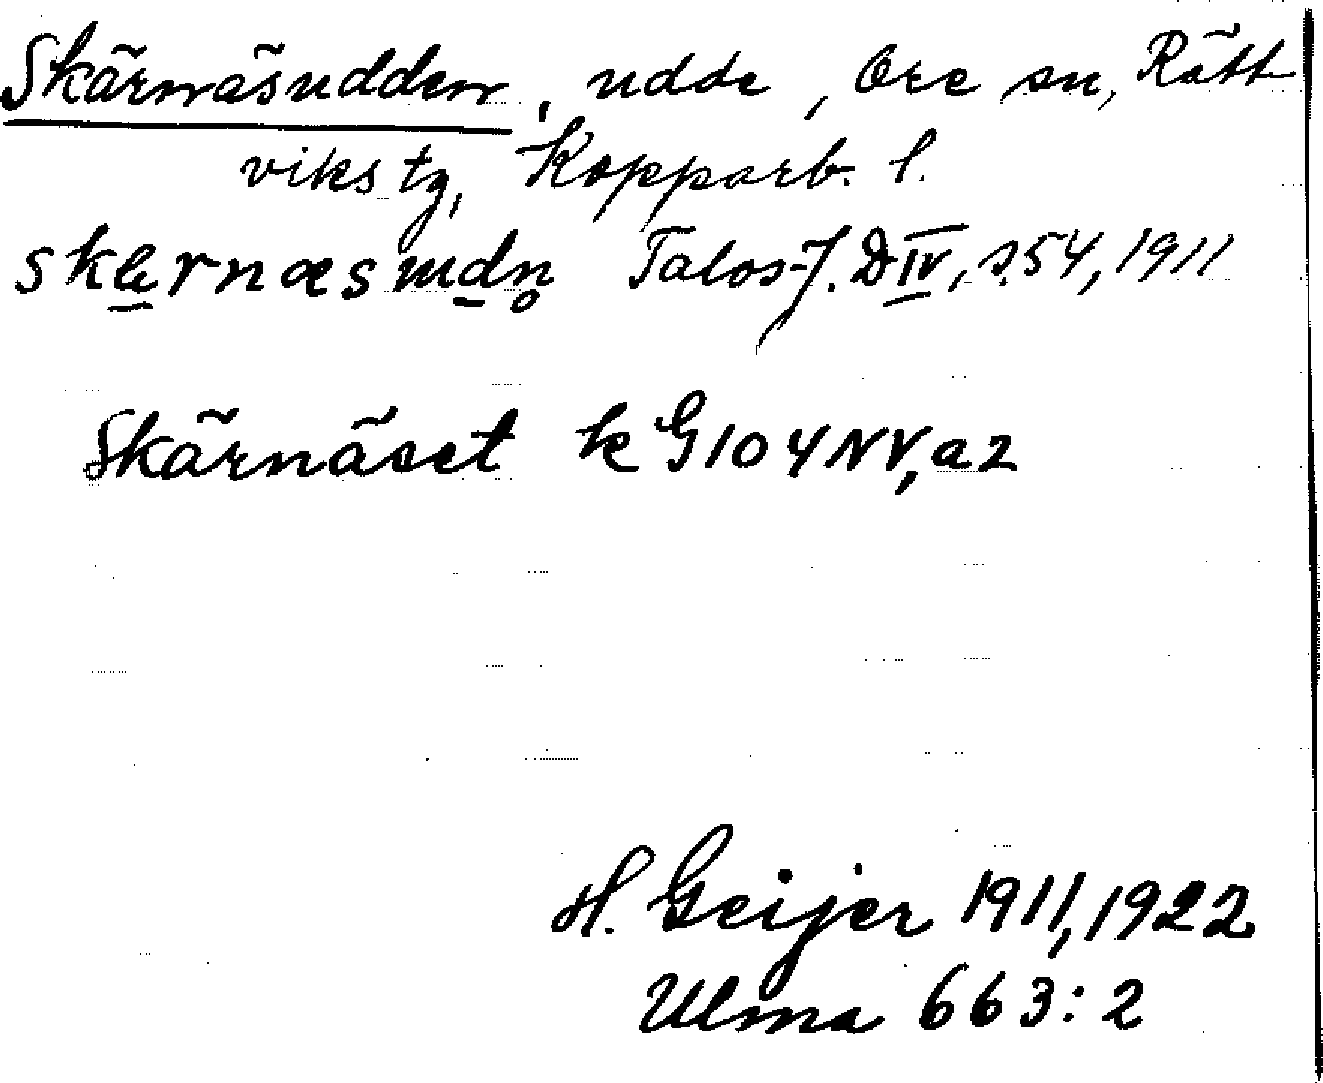 Skärnäsudden, udde, Ore sn, Rätt
viks tg, Kopparb. l.
Talos-J. D IV, s. 54, 1911
Skärnäset k G 104 NV, a2
H. Geijer 1911, 1922
Ulma 663:2